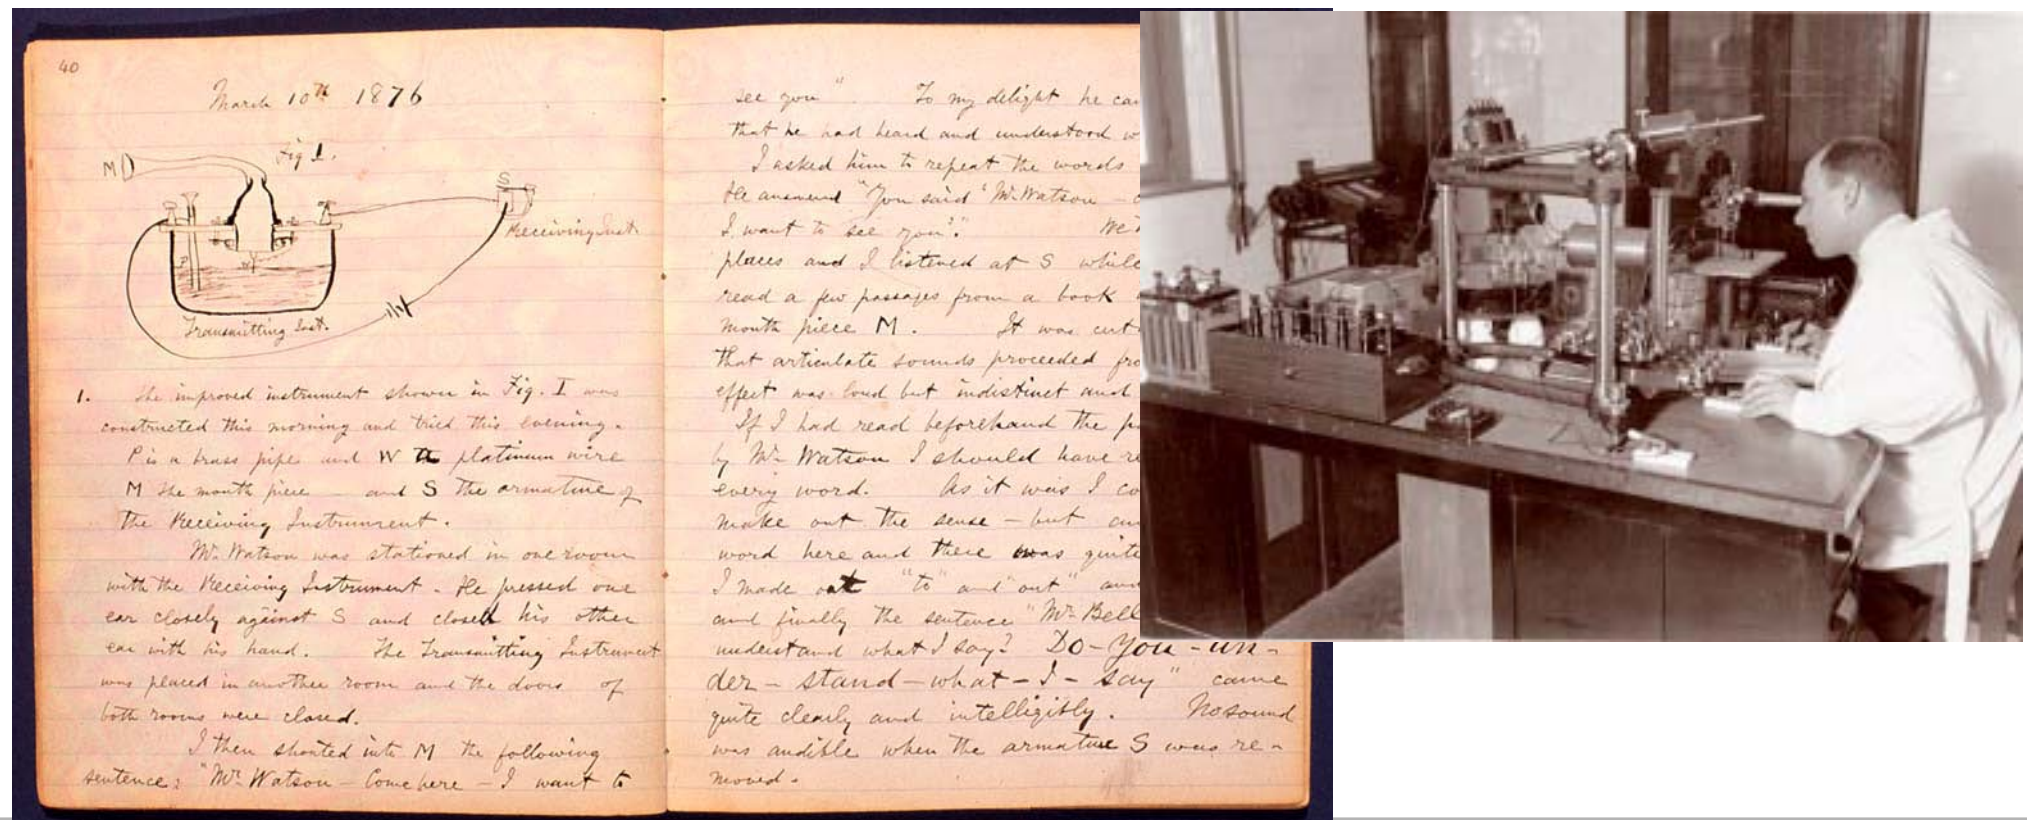 40
March 10th 1876
Fig 1.
M
S
Receiving Inst.
P
W
Transmitting Inst.
1. The improved instrument shown in Fig. I was
constructed this morning and tried this evening.
P is a brass pipe and W the platinum wire
M the mouth piece — and S the armature of
the Receiving Instrument.
Mr. Watson was stationed in one room
with the Receiving Instrument. He pressed one
ear closely against S and closed his other
ear with his hand. The Transmitting Instrument
was placed in another room and the doors of
both rooms were closed.
I then shouted into M the following
sentence: "Mr. Watson — Come here — I want to
see you". To my delight he ca
that he had heard and understood w
I asked him to repeat the words
He answered "You said 'Mr. Watson — c
I want to see you'." We
places and I listened at S while
read a few passages from a book
mouth piece M. It was cert
that articulate sounds proceeded fro
effect was loud but indistinct and
If I had read beforehand the pa
by Mr. Watson I should have re
every word. As it was I co
make out the sense — but an
word here and there was quite
I made out "to" and "out" and
and finally the sentence "Mr. Bell
understand what I say? Do-you-un-
der-stand-what-I-say" came
quite clearly and intelligibly. No sound
was audible when the armature S was re-
moved.